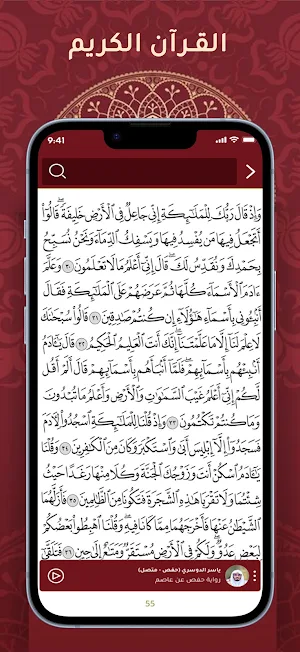 القرآن الكريم
9:41
وَإِذْ قَالَ رَبُّكَ لِلْمَلَٰٓئِكَةِ إِنِّي جَاعِلٌ فِي ٱلْأَرْضِ خَلِيفَةً ۖ قَالُوٓا۟
أَتَجْعَلُ فِيهَا مَن يُفْسِدُ فِيهَا وَيَسْفِكُ ٱلدِّمَآءَ وَنَحْنُ نُسَبِّحُ
بِحَمْدِكَ وَنُقَدِّسُ لَكَ ۖ قَالَ إِنِّيٓ أَعْلَمُ مَا لَا تَعْلَمُونَ ٣٠ وَعَلَّمَ
ءَادَمَ ٱلْأَسْمَآءَ كُلَّهَا ثُمَّ عَرَضَهُمْ عَلَى ٱلْمَلَٰٓئِكَةِ فَقَالَ
أَنۢبِـُٔونِي بِأَسْمَآءِ هَٰٓؤُلَآءِ إِن كُنتُمْ صَٰدِقِينَ ٣١ قَالُوا۟ سُبْحَٰنَكَ
لَا عِلْمَ لَنَآ إِلَّا مَا عَلَّمْتَنَآ ۖ إِنَّكَ أَنتَ ٱلْعَلِيمُ ٱلْحَكِيمُ ٣٢ قَالَ يَٰٓـَٔادَمُ
أَنۢبِئْهُم بِأَسْمَآئِهِمْ ۖ فَلَمَّآ أَنۢبَأَهُم بِأَسْمَآئِهِمْ قَالَ أَلَمْ أَقُل
لَّكُمْ إِنِّيٓ أَعْلَمُ غَيْبَ ٱلسَّمَٰوَٰتِ وَٱلْأَرْضِ وَأَعْلَمُ مَا تُبْدُونَ
وَمَا كُنتُمْ تَكْتُمُونَ ٣٣ وَإِذْ قُلْنَا لِلْمَلَٰٓئِكَةِ ٱسْجُدُوا۟ لِـَٔادَمَ
فَسَجَدُوٓا۟ إِلَّآ إِبْلِيسَ أَبَىٰ وَٱسْتَكْبَرَ وَكَانَ مِنَ ٱلْكَٰفِرِينَ ٣٤ وَقُلْنَا
يَٰٓـَٔادَمُ ٱسْكُنْ أَنتَ وَزَوْجُكَ ٱلْجَنَّةَ وَكُلَا مِنْهَا رَغَدًا حَيْثُ
شِئْتُمَا وَلَا تَقْرَبَا هَٰذِهِ ٱلشَّجَرَةَ فَتَكُونَا مِنَ ٱلظَّٰلِمِينَ ٣٥ فَأَزَلَّهُمَا
ٱلشَّيْطَٰنُ عَنْهَا فَأَخْرَجَهُمَا مِمَّا كَانَا فِيهِ ۖ وَقُلْنَا ٱهْبِطُوا۟ بَعْضُكُمْ
لِبَعْضٍ عَدُوٌّ ۖ وَلَكُمْ فِي ٱلْأَرْضِ مُسْتَقَرٌّ وَمَتَٰعٌ إِلَىٰ حِينٍ ٣٦ فَتَلَقَّىٰٓ
ياسر الدوسري (حفص - متصل)
رواية حفص عن عاصم
55